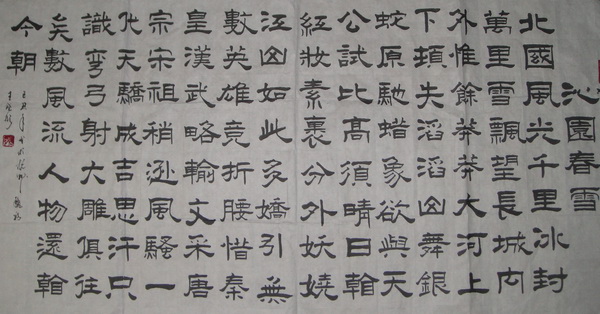 沁園春雪
北國風光千里冰封
萬里雪飄望長城内
外惟餘莽莽大河上
下頓失滔滔山舞銀
蛇原馳蜡象欲與天
公試比高須晴日看
紅妝素裹分外妖嬈
江山如此多嬌引無
數英雄競折腰惜秦
皇漢武略輸文采唐
宗宋祖稍遜風騷一
代天驕成吉思汗只
識彎弓射大雕俱往
矣數風流人物還看
今朝